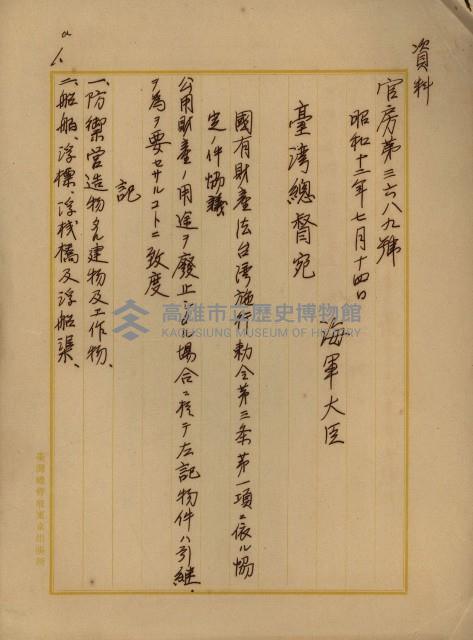 資料
官房第三六八九號
昭和十二年七月十四日
海軍大臣
臺灣總督宛
國有財產法台湾施行勅令第三条第一項ニ依ル協
定ノ件協議
公用財產ノ用途ヲ廢止シタル場合ニ於テ左記物件ハ引継
ヲ為ヲ要セサルコトニ致度
記
一、防禦営造物タル建物及工作物、
二、船舶、浮標、浮桟橋及浮船渠、
高雄市立歷史博物館
KAOHSIUNG MUSEUM OF HISTORY
臺灣總督府東京出張所